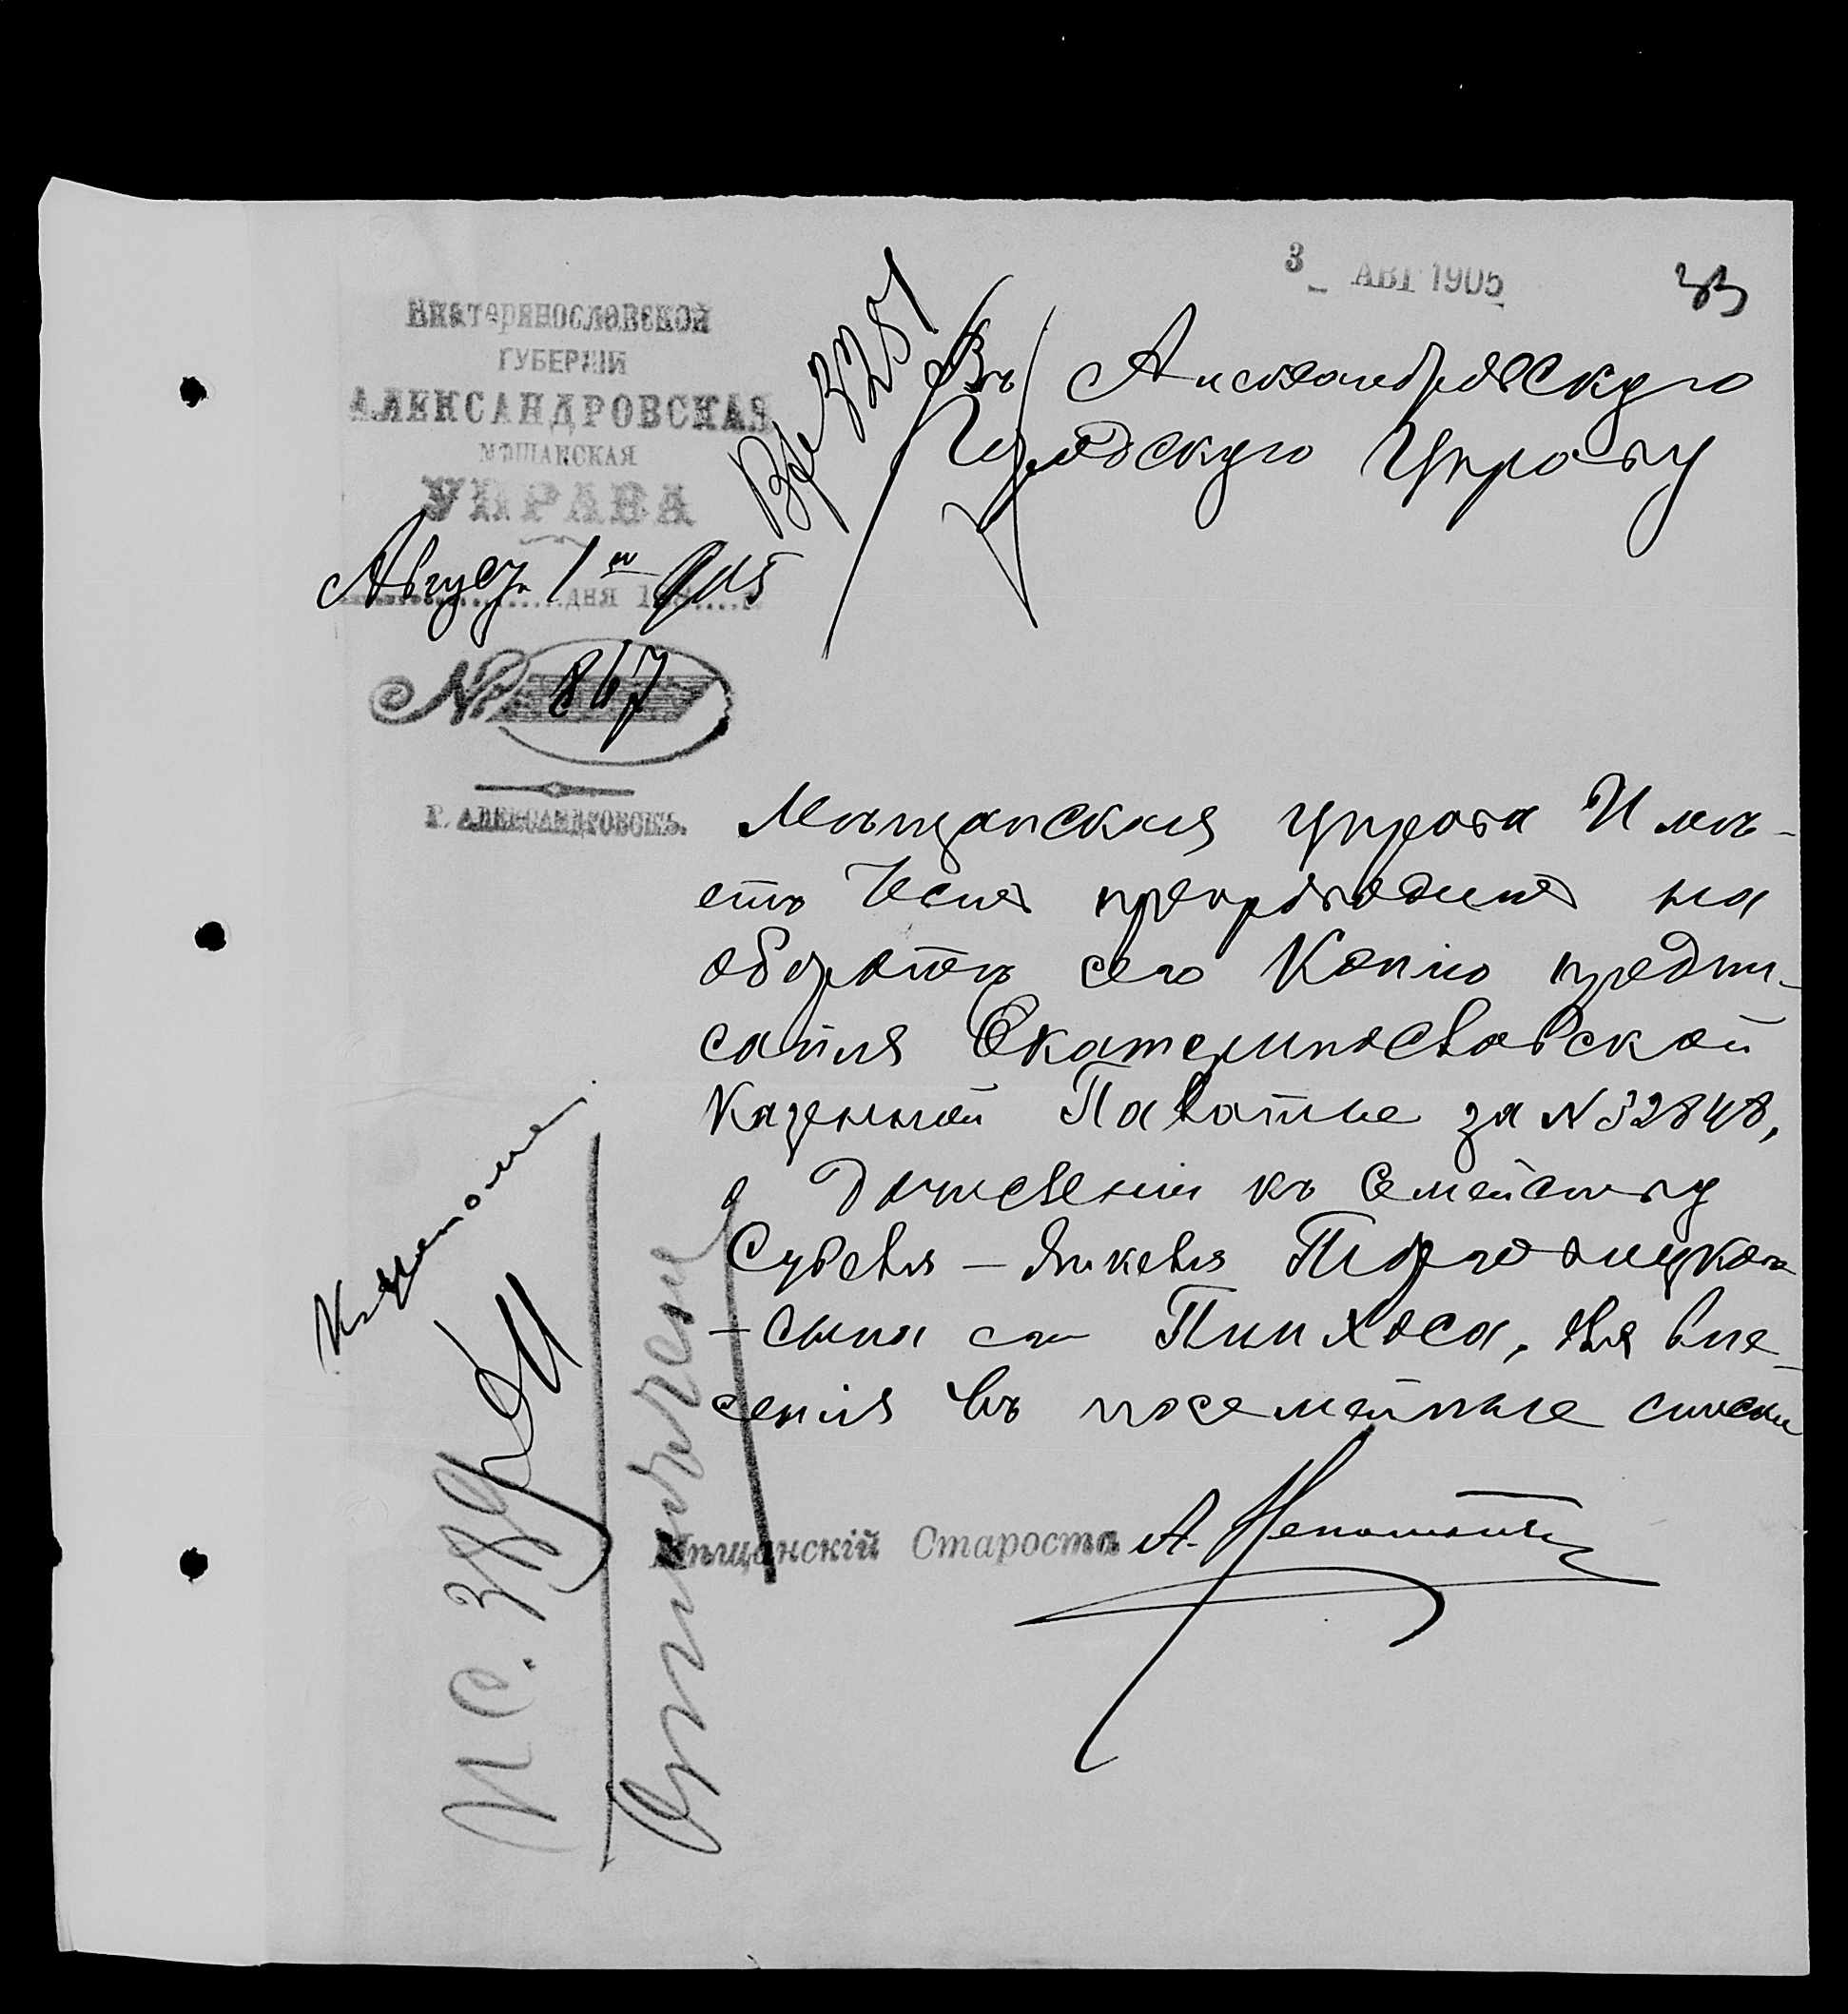 3 - АВГ 1905
33
Екатеринославской
ГУБЕРНІИ
АЛЕКСАНДРОВСКАЯ
МѢЩАНСКАЯ
УПРАВА
Август. 1 905
дня
№ 867
Г. АЛЕКСАНДРОВСКЪ.
3251
Въ Александровскую
Городскую Управу
Мѣщанская управа Имѣ-
етъ Честь препроводить на
оборотѣ сего Копію предпи-
санія Екатеринославской
Казенной Палаты за № 32848,
о Дочисленіи къ Семейству
Янкеля
- сына его Пинхоса, для вне-
сенія въ посемейные списки
Мѣщанскій Староста А.